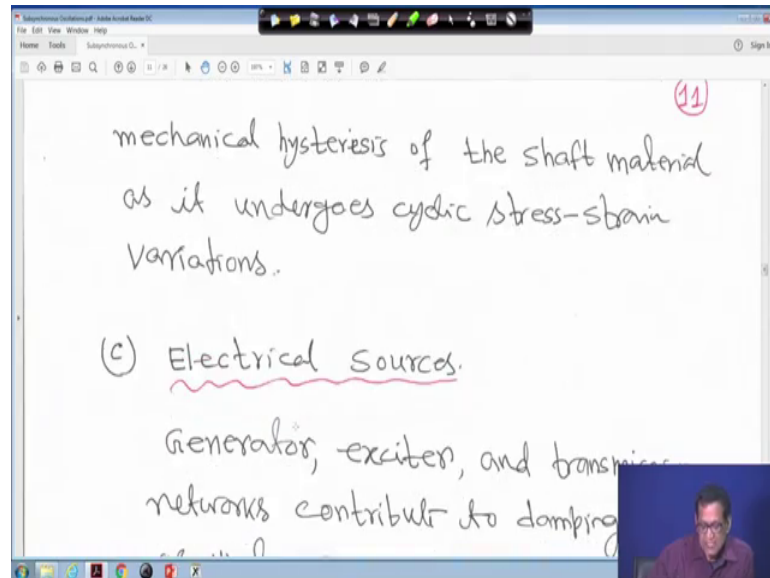 Subsynchronous Oscillations.pdf - Adobe Acrobat Reader DC
File Edit View Window Help
Home Tools Subsynchronous O... × Sign In
11 / 28
11
mechanical hysterisis of the shaft material
as it undergoes cyclic stress-strain
variations.
(c) Electrical Sources.
Generator, exciter, and
networks contribute to damping